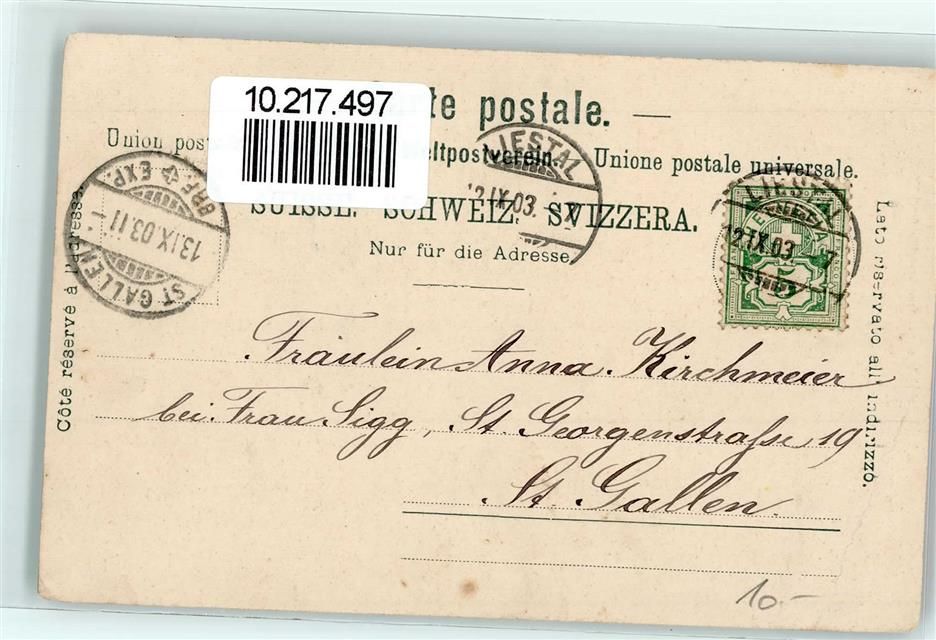 10.217.497
te postale. —
Union post
eltpostverein.
Unione postale universale.
SUISSE. SCHWEIZ. SVIZZERA.
Nur für die Adresse.
Côté réservé à l'adresse.
Lato riservato all' indirizzo.
ST. GALLEN
BRF. EXP.
13.IX.03.11-
LIESTAL
12.IX.03. 7
LIESTAL
12.IX.03. 7
5
Fräulein Anna Kirchmeier
bei Frau Sigg, St. Georgenstraße 19
St. Gallen.
10.-